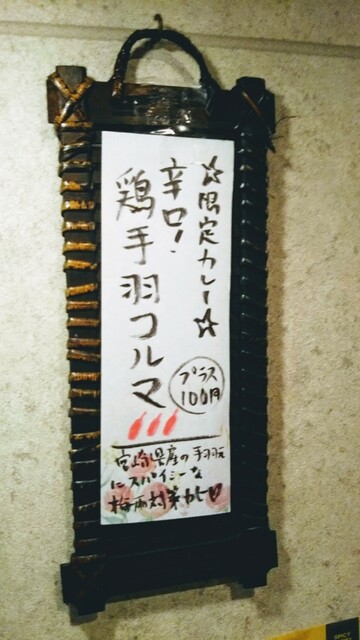 ☆限定カレー☆
辛口!
鶏手羽コルマ
プラス
100円
宮崎県産の手羽元
にスパイシーな
梅雨対策カレー♡